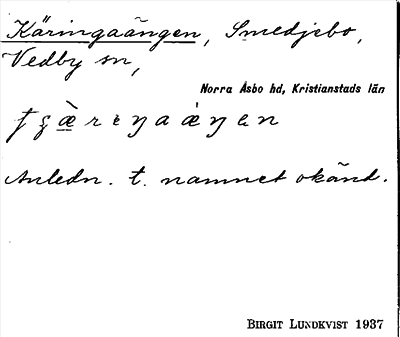 Käringaängen, Smedjebo,
Vedby sn,
Norra Åsbo hd, Kristianstads län
Anledn. t. namnet okänd.
BIRGIT LUNDKVIST 1937